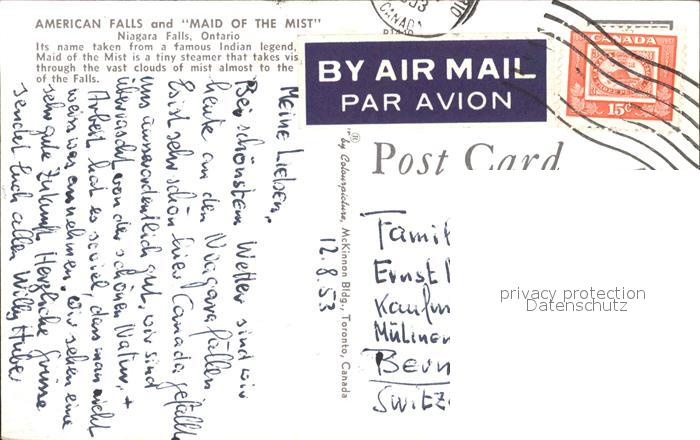 AMERICAN FALLS and "MAID OF THE MIST"
Niagara Falls, Ontario
Its name taken from a famous Indian legend,
Maid of the Mist is a tiny steamer that takes vis
through the vast clouds of mist almost to the
of the Falls.
CANADA
BY AIR MAIL
PAR AVION
CANADA
THREE PENCE
15¢
Post Card
® by Colourpicture, McKinnon Bldg., Toronto, Canada
12.8.53
Meine Lieben,
Bei schönstem Wetter sind wir
heute an den Niagarafällen
Es ist sehr schön hier Canada gefällt
uns ausserordentlich gut, wir sind
überrascht von der schönen Natur, +
Arbeit hat es soviel, dass man nicht
weiss was annehmen. Wir sehen eine
sehr gute Zukunft Herzliche Grüsse
sendet Euch allen Willy Huber
Famil
Ernst
Kaufm
Müliner
Bern
Switz
privacy protection
Datenschutz